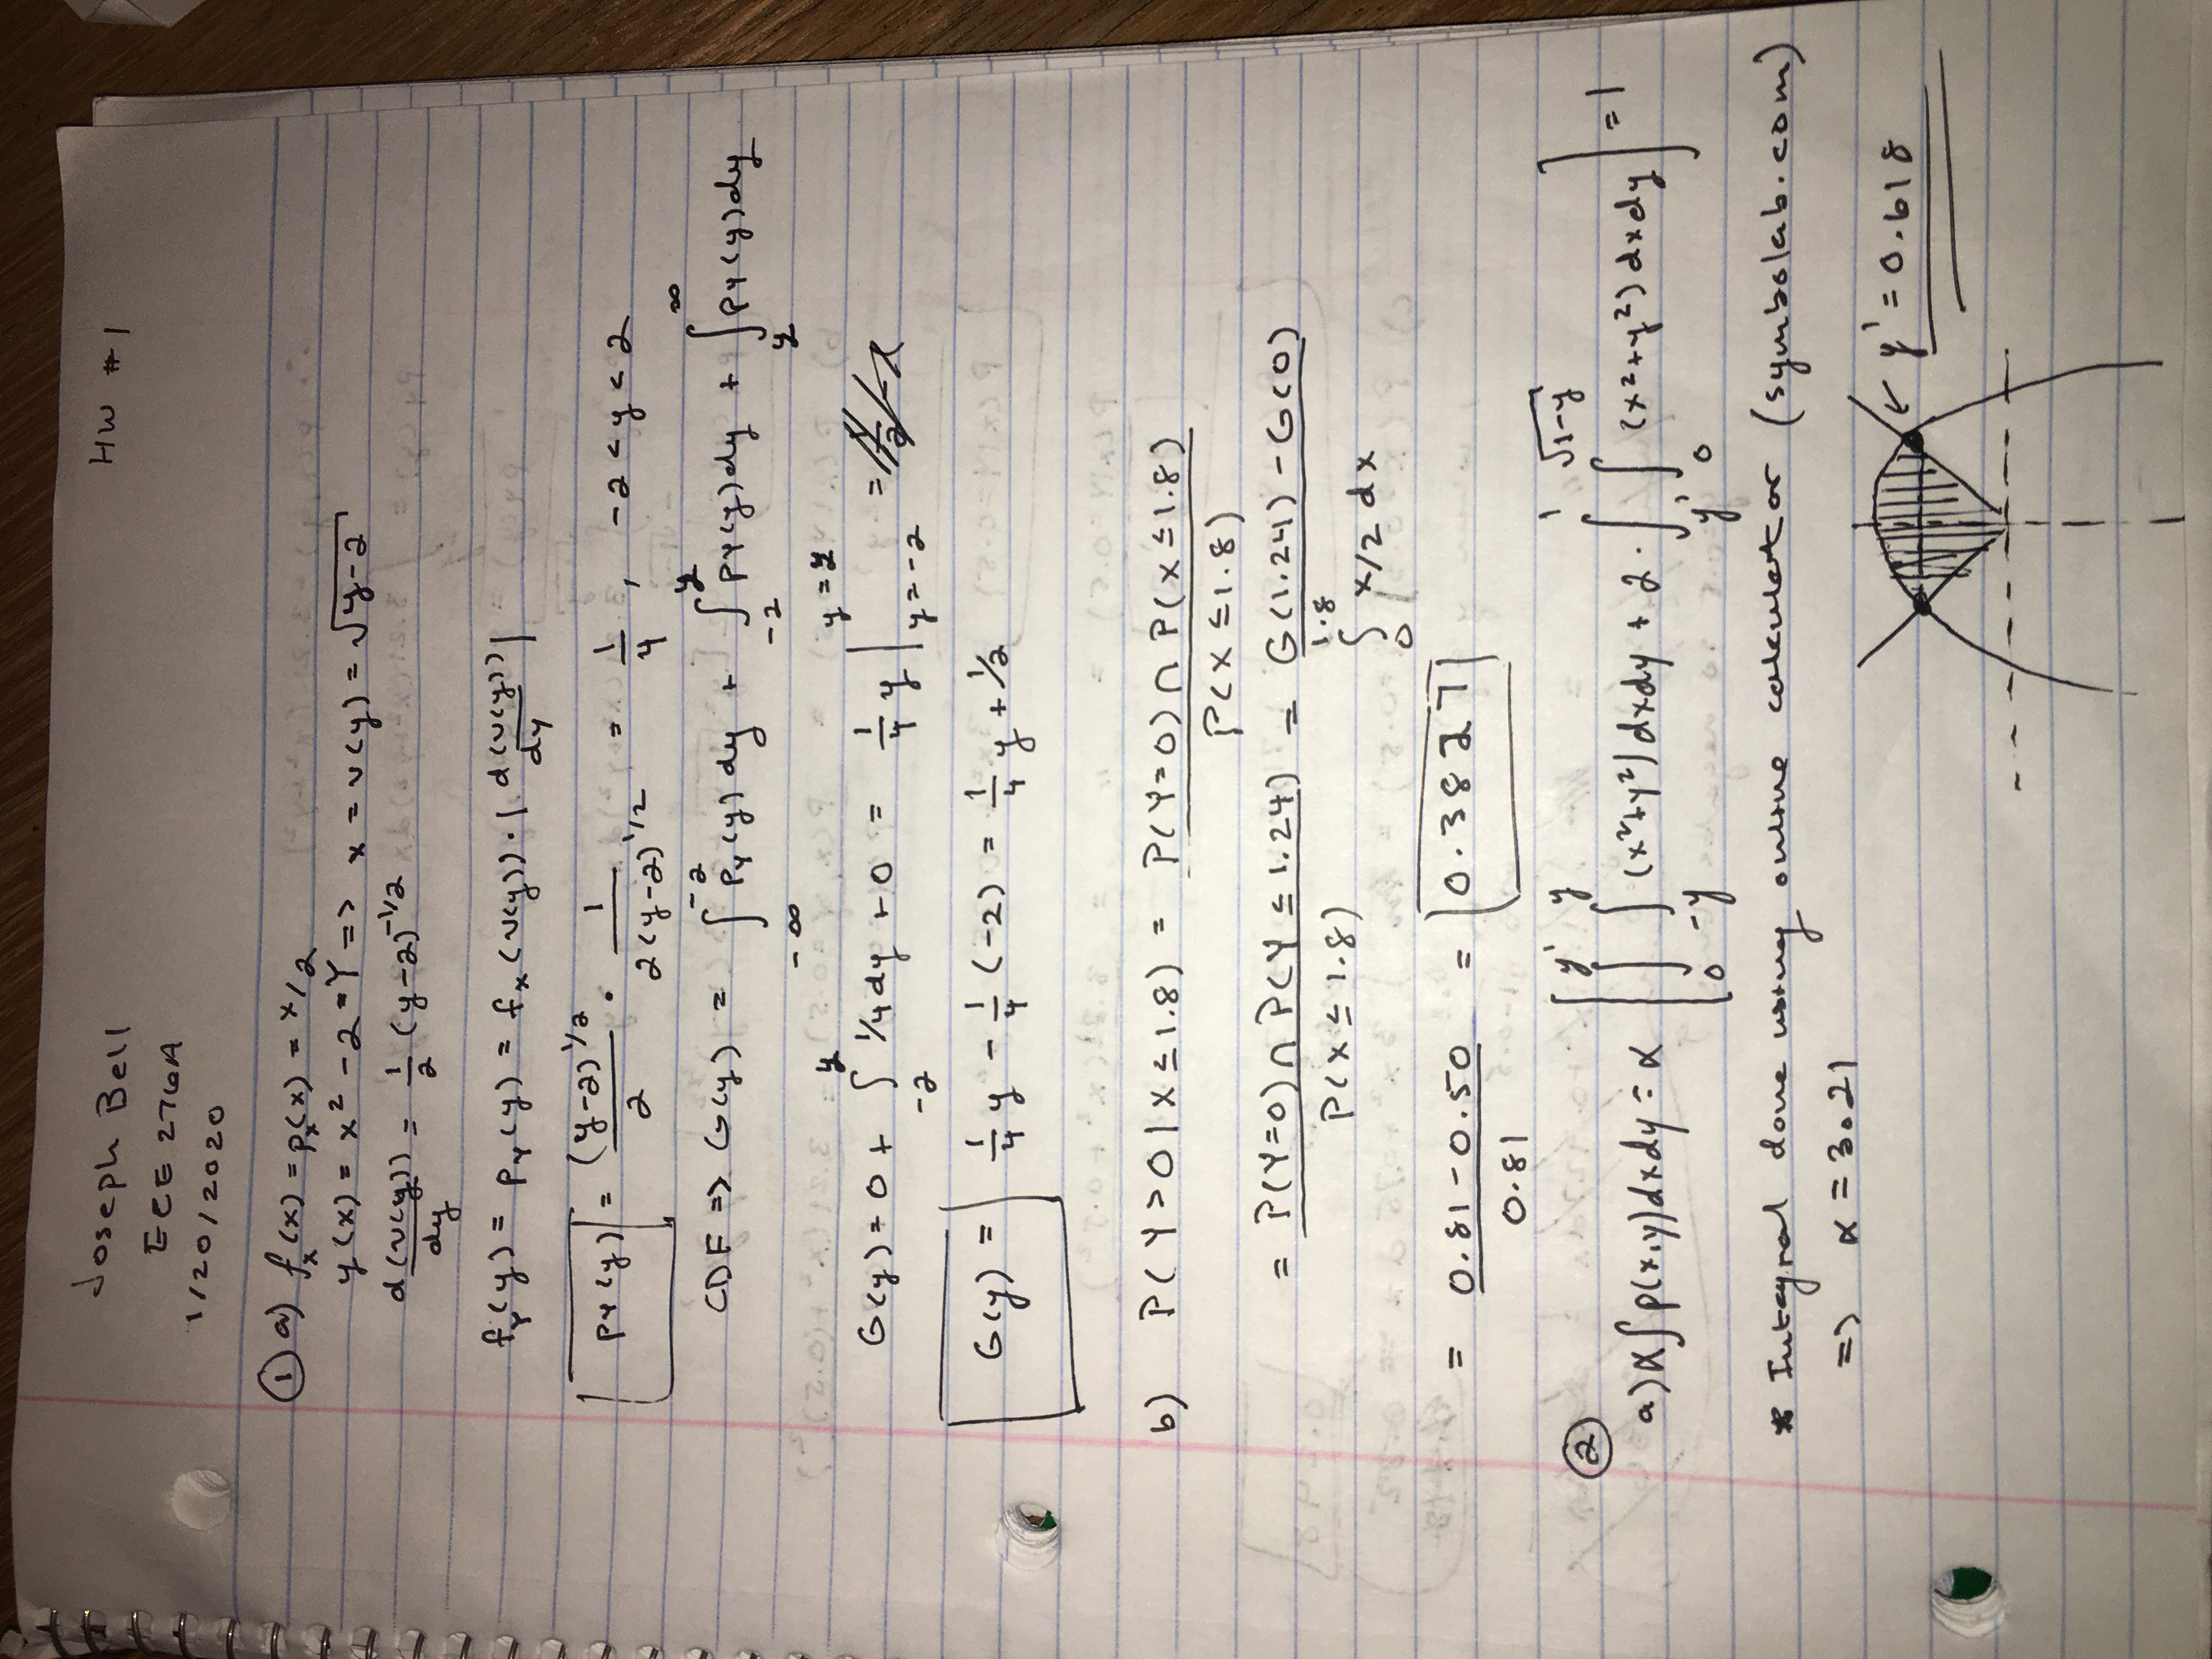 Joseph Bell
HW #1
ECE 276A
1/20/2020
① a) f_X(x) = p_X(x) = x/2
y(x) = x² - 2 = Y => x = v(y) = √(y-2)
d(v(y))/dy = 1/2 (y-2)^(-1/2)
f_Y(y) = p_Y(y) = f_X(v(y)) · |d(v(y))/dy|
p_Y(y) = (y-2)^(1/2)/2 · 1/(2(y-2)^(1/2)) = 1/4, -2 < y < 2
CDF => G(y) = ∫_{-∞}^{-2} p_Y(y) dy + ∫_{-2}^{y} p_Y(y) dy + ∫_{y}^{∞} p_Y(y) dy
G(y) = 0 + ∫_{-2}^{y} 1/4 dy + 0 = 1/4 y |_{y=-2}^{y=y} =
G(y) = 1/4 y - 1/4 (-2) = 1/4 y + 1/2
b) P(Y>0 | X ≤ 1.8) = P(Y=0) ∩ P(X ≤ 1.8) / P(X ≤ 1.8)
= P(Y=0) ∩ P(Y ≤ 1.24) / P(X ≤ 1.8) = G(1.24) - G(0) / ∫_{0}^{1.8} x/2 dx
= 0.81 - 0.50 / 0.81 = 0.3827
②
a) α∫p(x,y)dxdy = α [∫_{0}^{y'} ∫_{-y}^{y} (x²+y²) dxdy + 2 · ∫_{y'}^{1} ∫_{0}^{√(1-y)} (x²+y²) dxdy] = 1
* Integral done using online calculator (symbolab.com)
=> α = 3.21
← y' = 0.618